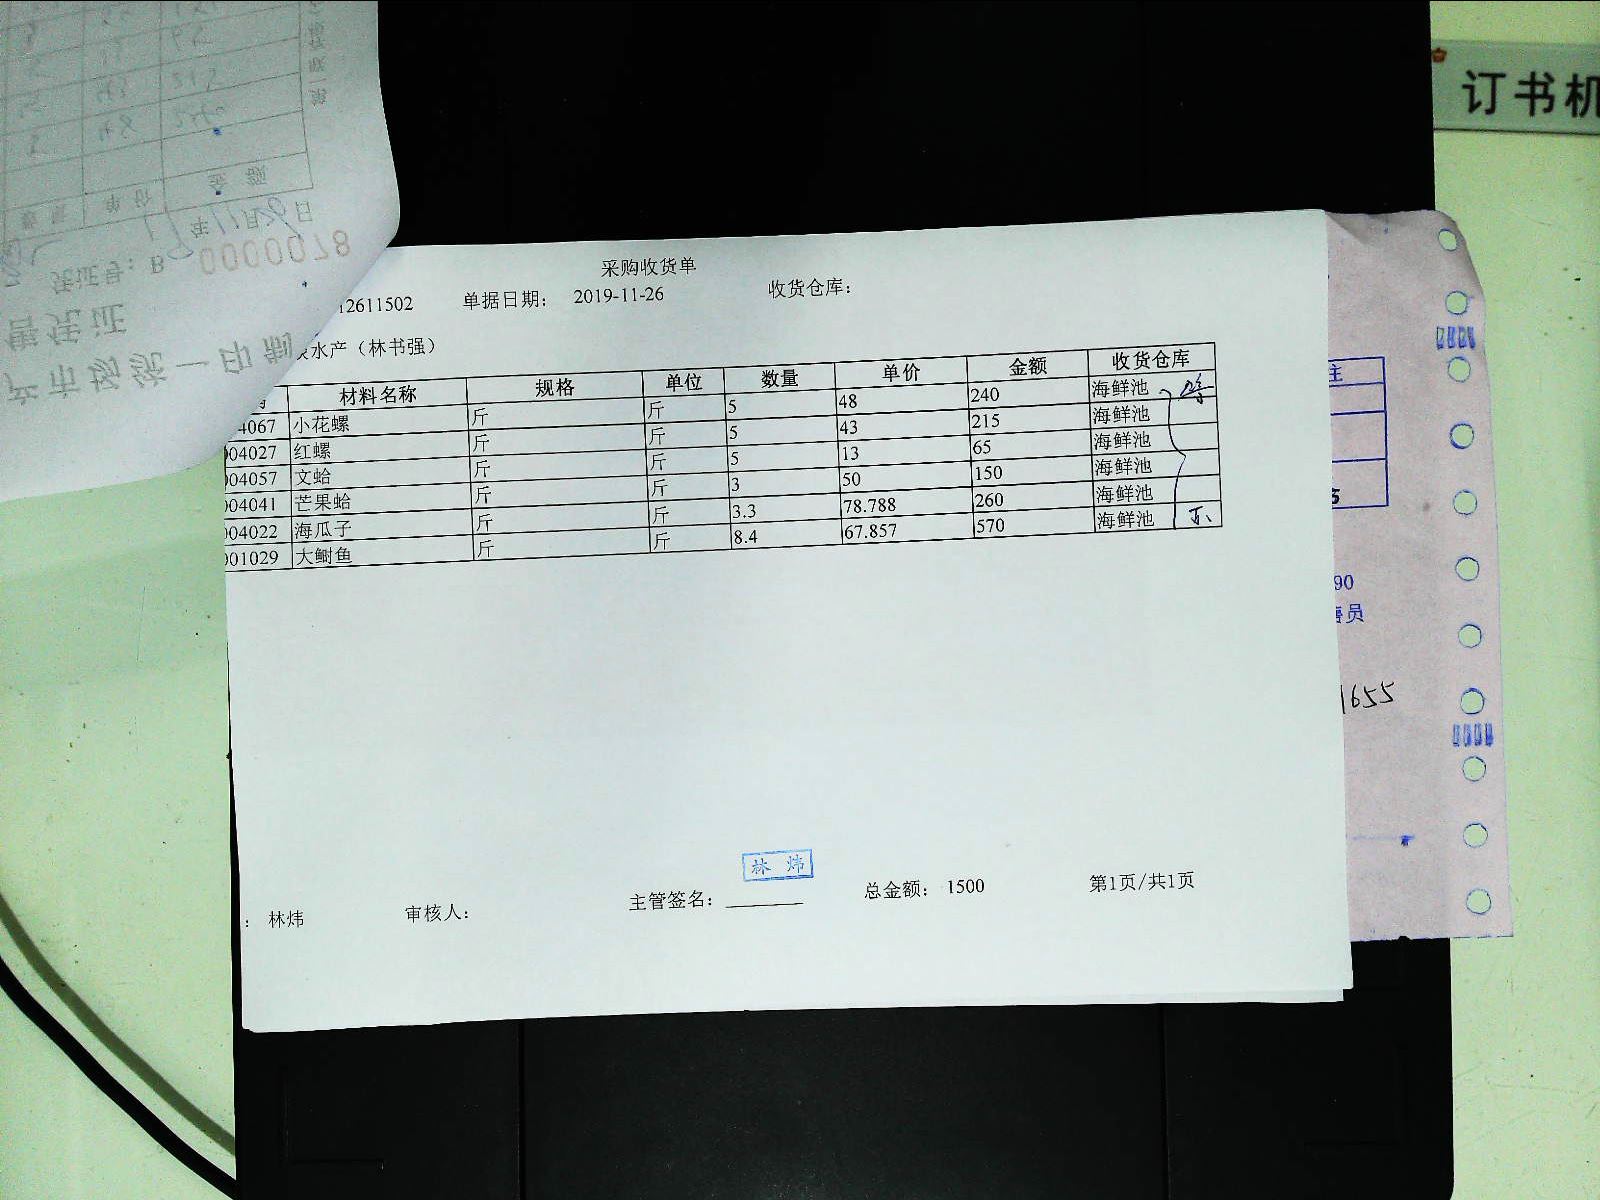 订书机
采购收货单
12611502 单据日期： 2019-11-26 收货仓库：
水产（林书强）
材料名称 规格 单位 数量 单价 金额 收货仓库
4067 小花螺 斤 斤 5 48 240 海鲜池
04027 红螺 斤 斤 5 43 215 海鲜池
04057 文蛤 斤 斤 5 13 65 海鲜池
04041 芒果蛤 斤 斤 3 50 150 海鲜池
04022 海瓜子 斤 斤 3.3 78.788 260 海鲜池
01029 大鲥鱼 斤 斤 8.4 67.857 570 海鲜池
林炜
： 林炜 审核人： 主管签名： 总金额： 1500 第1页/共1页
金 额
单 价
年11月26日
凭证号： B 0000078
售凭证
产市场统一印制
注
90
售员
1655